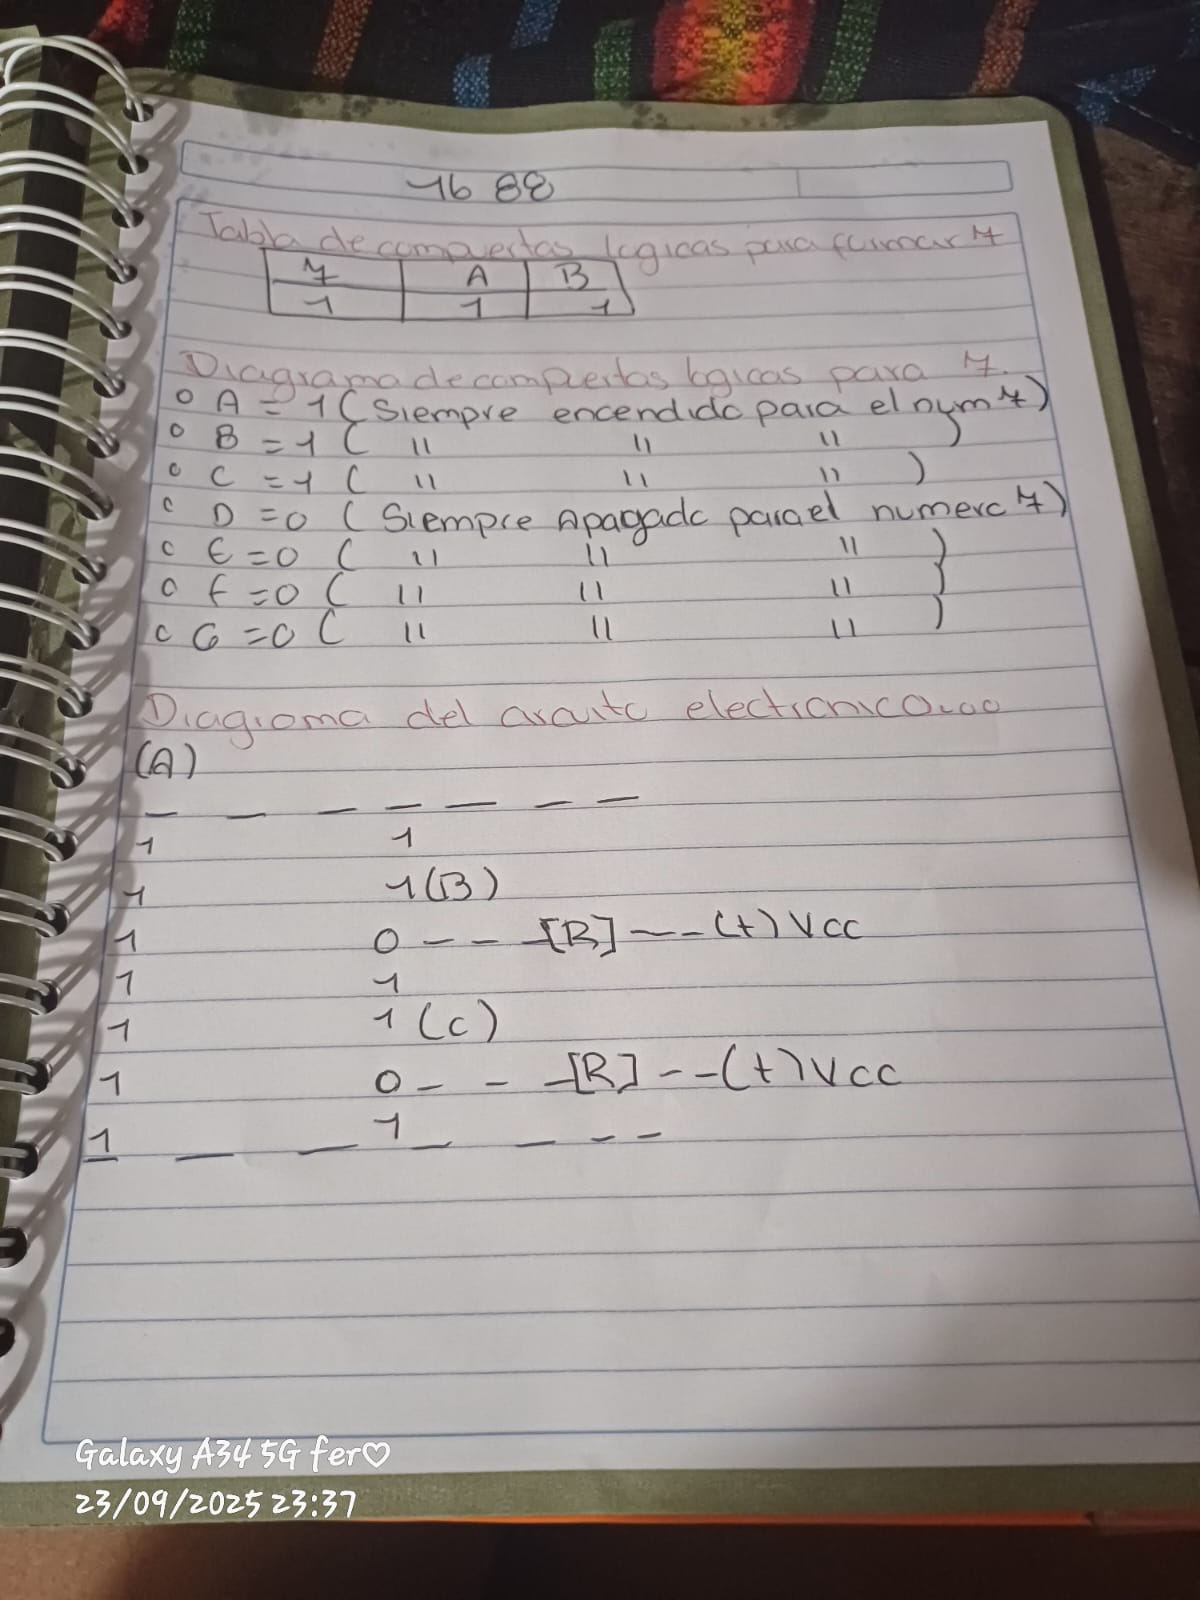 16 88
Tabla de compuertas logicas para formar 7
7 A B
1 1 1
Diagrama de compuertas logicas para 7.
o A = 1 ( Siempre encendido para el num 7 )
o B = 1 ( " " " )
o C = 1 ( " " " )
o D = 0 ( Siempre Apagado para el numero 7 )
o E = 0 ( " " " )
o F = 0 ( " " " )
o G = 0 ( " " " )
Diagrama del circuito electronico...
(A)
_ _ _ _ _ _ _
1 1
1 1 (B)
1 0 - - -[R] - - -(+) Vcc
1 1
1 1 (C)
1 0 - - -[R] - - (+) Vcc
1 1
_ _ _ _ _ _ _
Galaxy A34 5G fer♡
23/09/2025 23:37